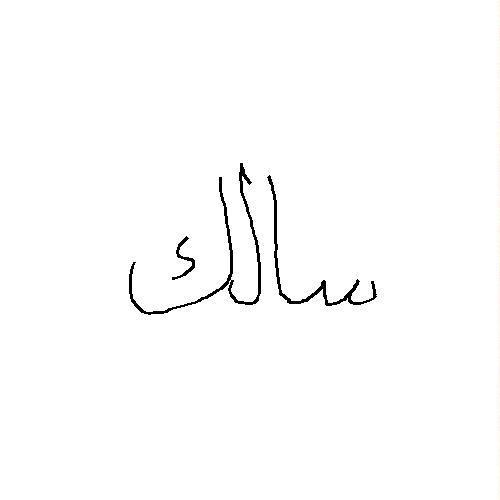 سالك